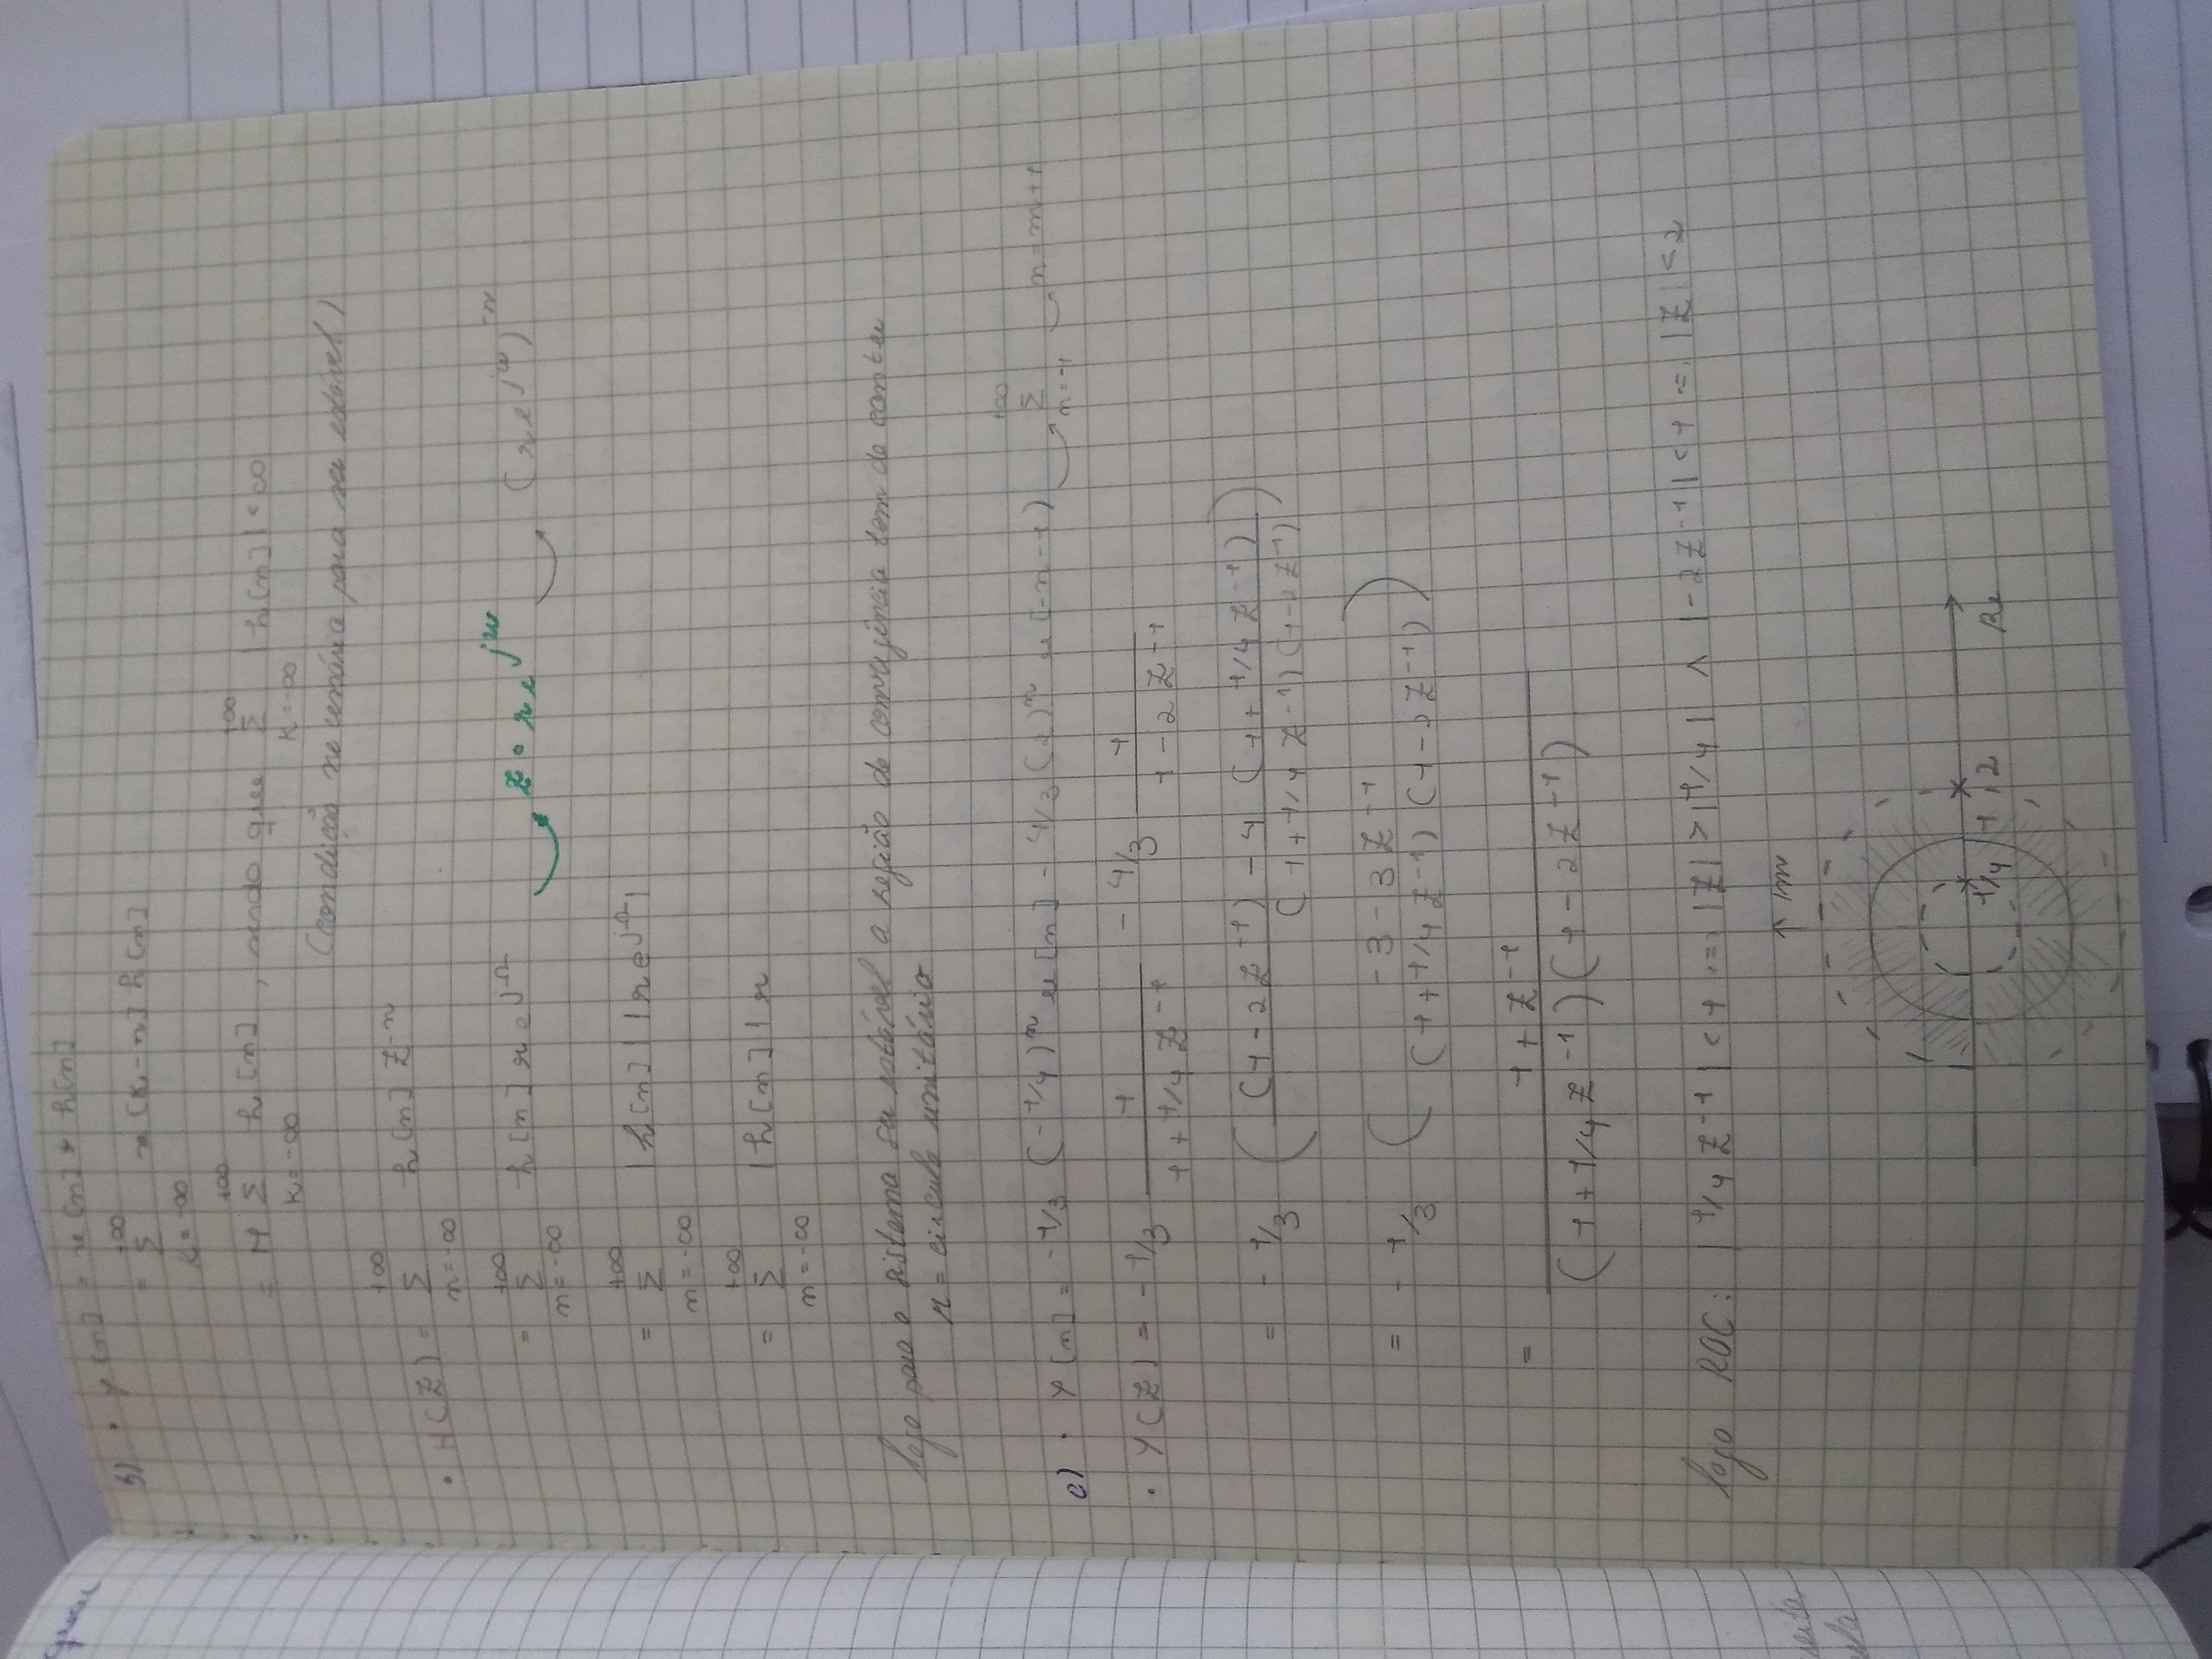 b) • y[n] = x[n] * h[n]
= +∞ Σ k=-∞ x[k-n] h[n]
= M +∞ Σ k=-∞ h[n], sendo que +∞ Σ k=-∞ |h[n]| < ∞
(condição necessária para ser estável)
• H(Z) = +∞ Σ n=-∞ h[n] Z^-n
= +∞ Σ n=-∞ h[n] r e^jΩ → Z = r e^jw → (r e^jw)^-n
= +∞ Σ n=-∞ |h[n]| |r e^jΩ|
= +∞ Σ n=-∞ |h[n]| r
logo para o sistema ser estável a região de convergência tem de conter
r = circulo unitário
c) • Y[n] = -1/3 (-1/4)^n u[n] - 4/3 (2)^n u[-n-1] → +∞ Σ n=-1 → n=m+1
• Y(Z) = -1/3 1/(1+1/4 Z^-1) - 4/3 1/(1-2Z^-1)
= -1/3 ( ((1-2Z^-1) - 4 (1+1/4 Z^-1)) / ((1+1/4 Z^-1)(1-2Z^-1)) )
= -1/3 ( (-3-3Z^-1) / ((1+1/4 Z^-1)(1-2Z^-1)) )
= (1+Z^-1) / ((1+1/4 Z^-1)(1-2Z^-1))
logo ROC: |1/4 Z^-1| < 1 <=> |Z| > |1/4| ∧ |-2Z^-1| < 1 =, |Z| < 2
Im
1/4 1 2 Re